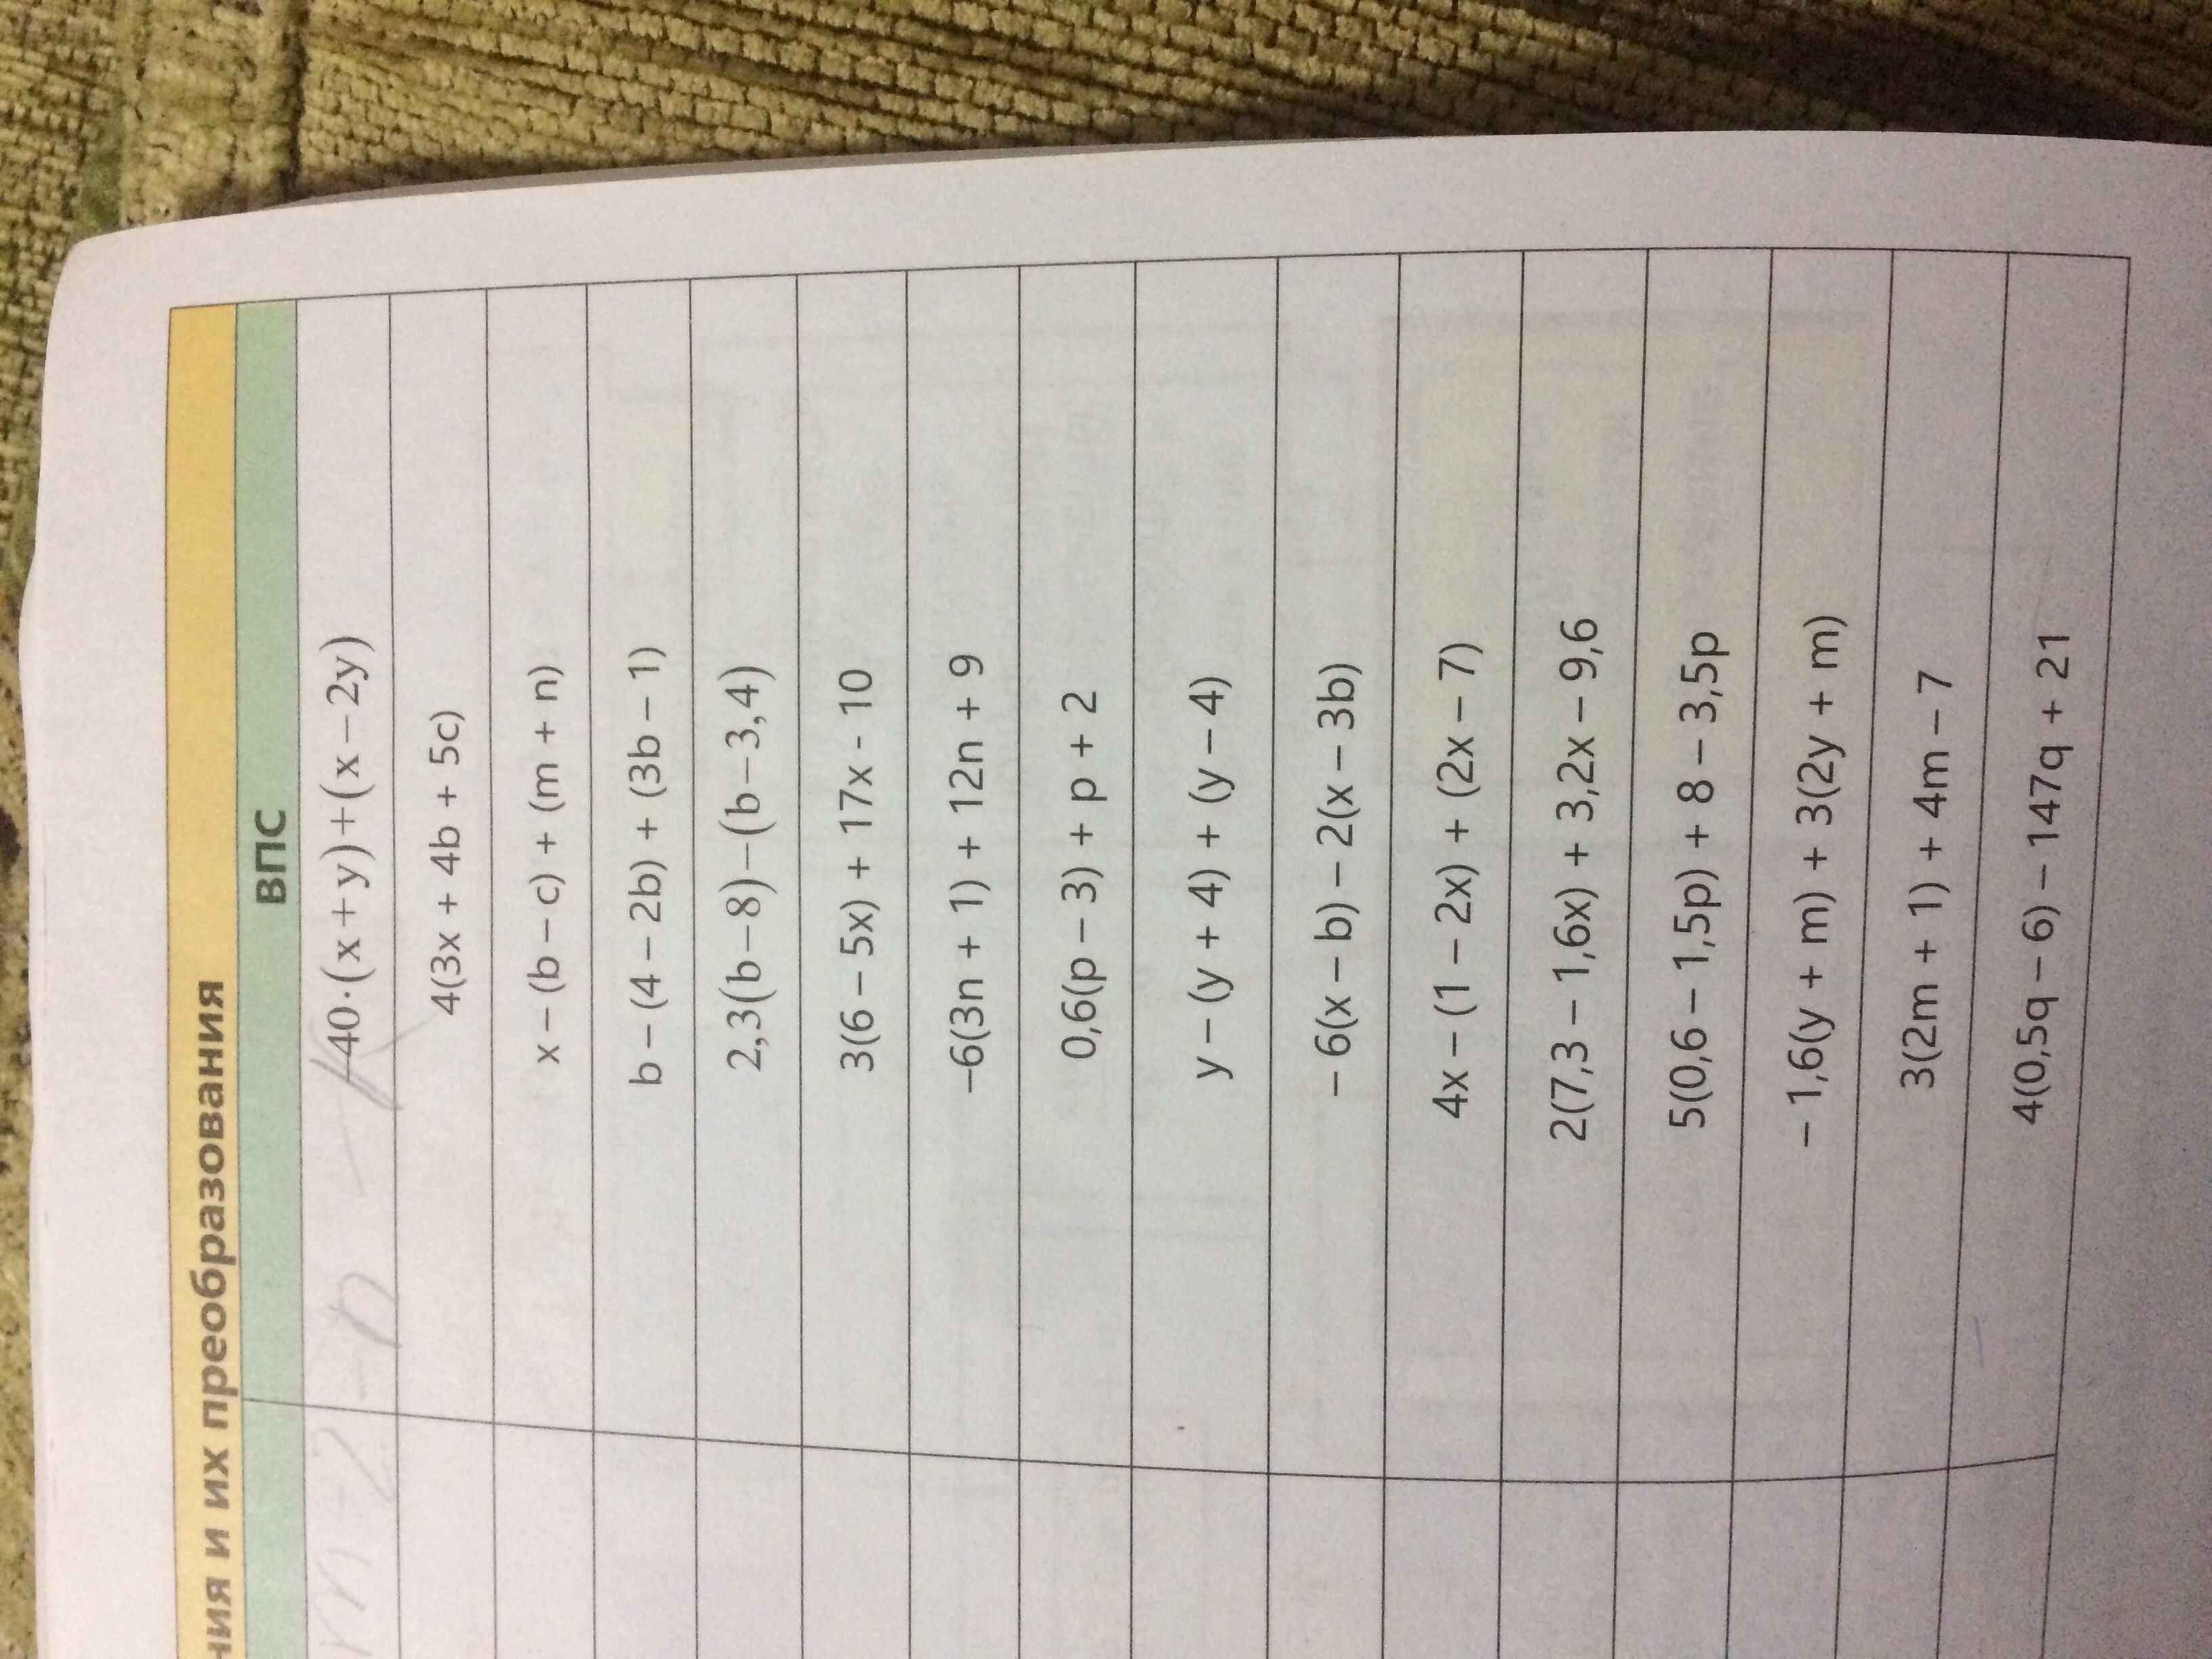 ния и их преобразования
ВПС
-40·(x+y)+(x-2y)
4(3x + 4b + 5c)
x – (b – c) + (m + n)
b – (4 – 2b) + (3b – 1)
2,3(b–8)–(b–3,4)
3(6 – 5x) + 17x - 10
–6(3n + 1) + 12n + 9
0,6(p – 3) + p + 2
y – (y + 4) + (y – 4)
– 6(x – b) – 2(x – 3b)
4x – (1 – 2x) + (2x – 7)
2(7,3 – 1,6x) + 3,2x – 9,6
5(0,6 – 1,5p) + 8 – 3,5p
– 1,6(y + m) + 3(2y + m)
3(2m + 1) + 4m – 7
4(0,5q – 6) – 147q + 21